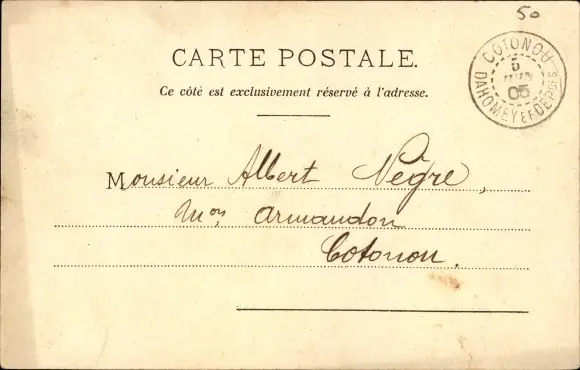 50
CARTE POSTALE.
Ce côté est exclusivement réservé à l'adresse.
COTONOU
5
05
DAHOMEY ET DEPCES
Monsieur Albert Nègre,
Mon Armandon
Cotonou.